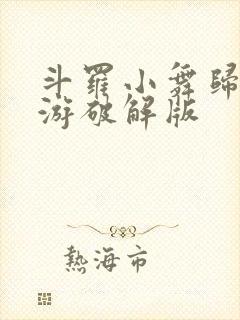 斗羅小舞歸
游破解版
熱海市